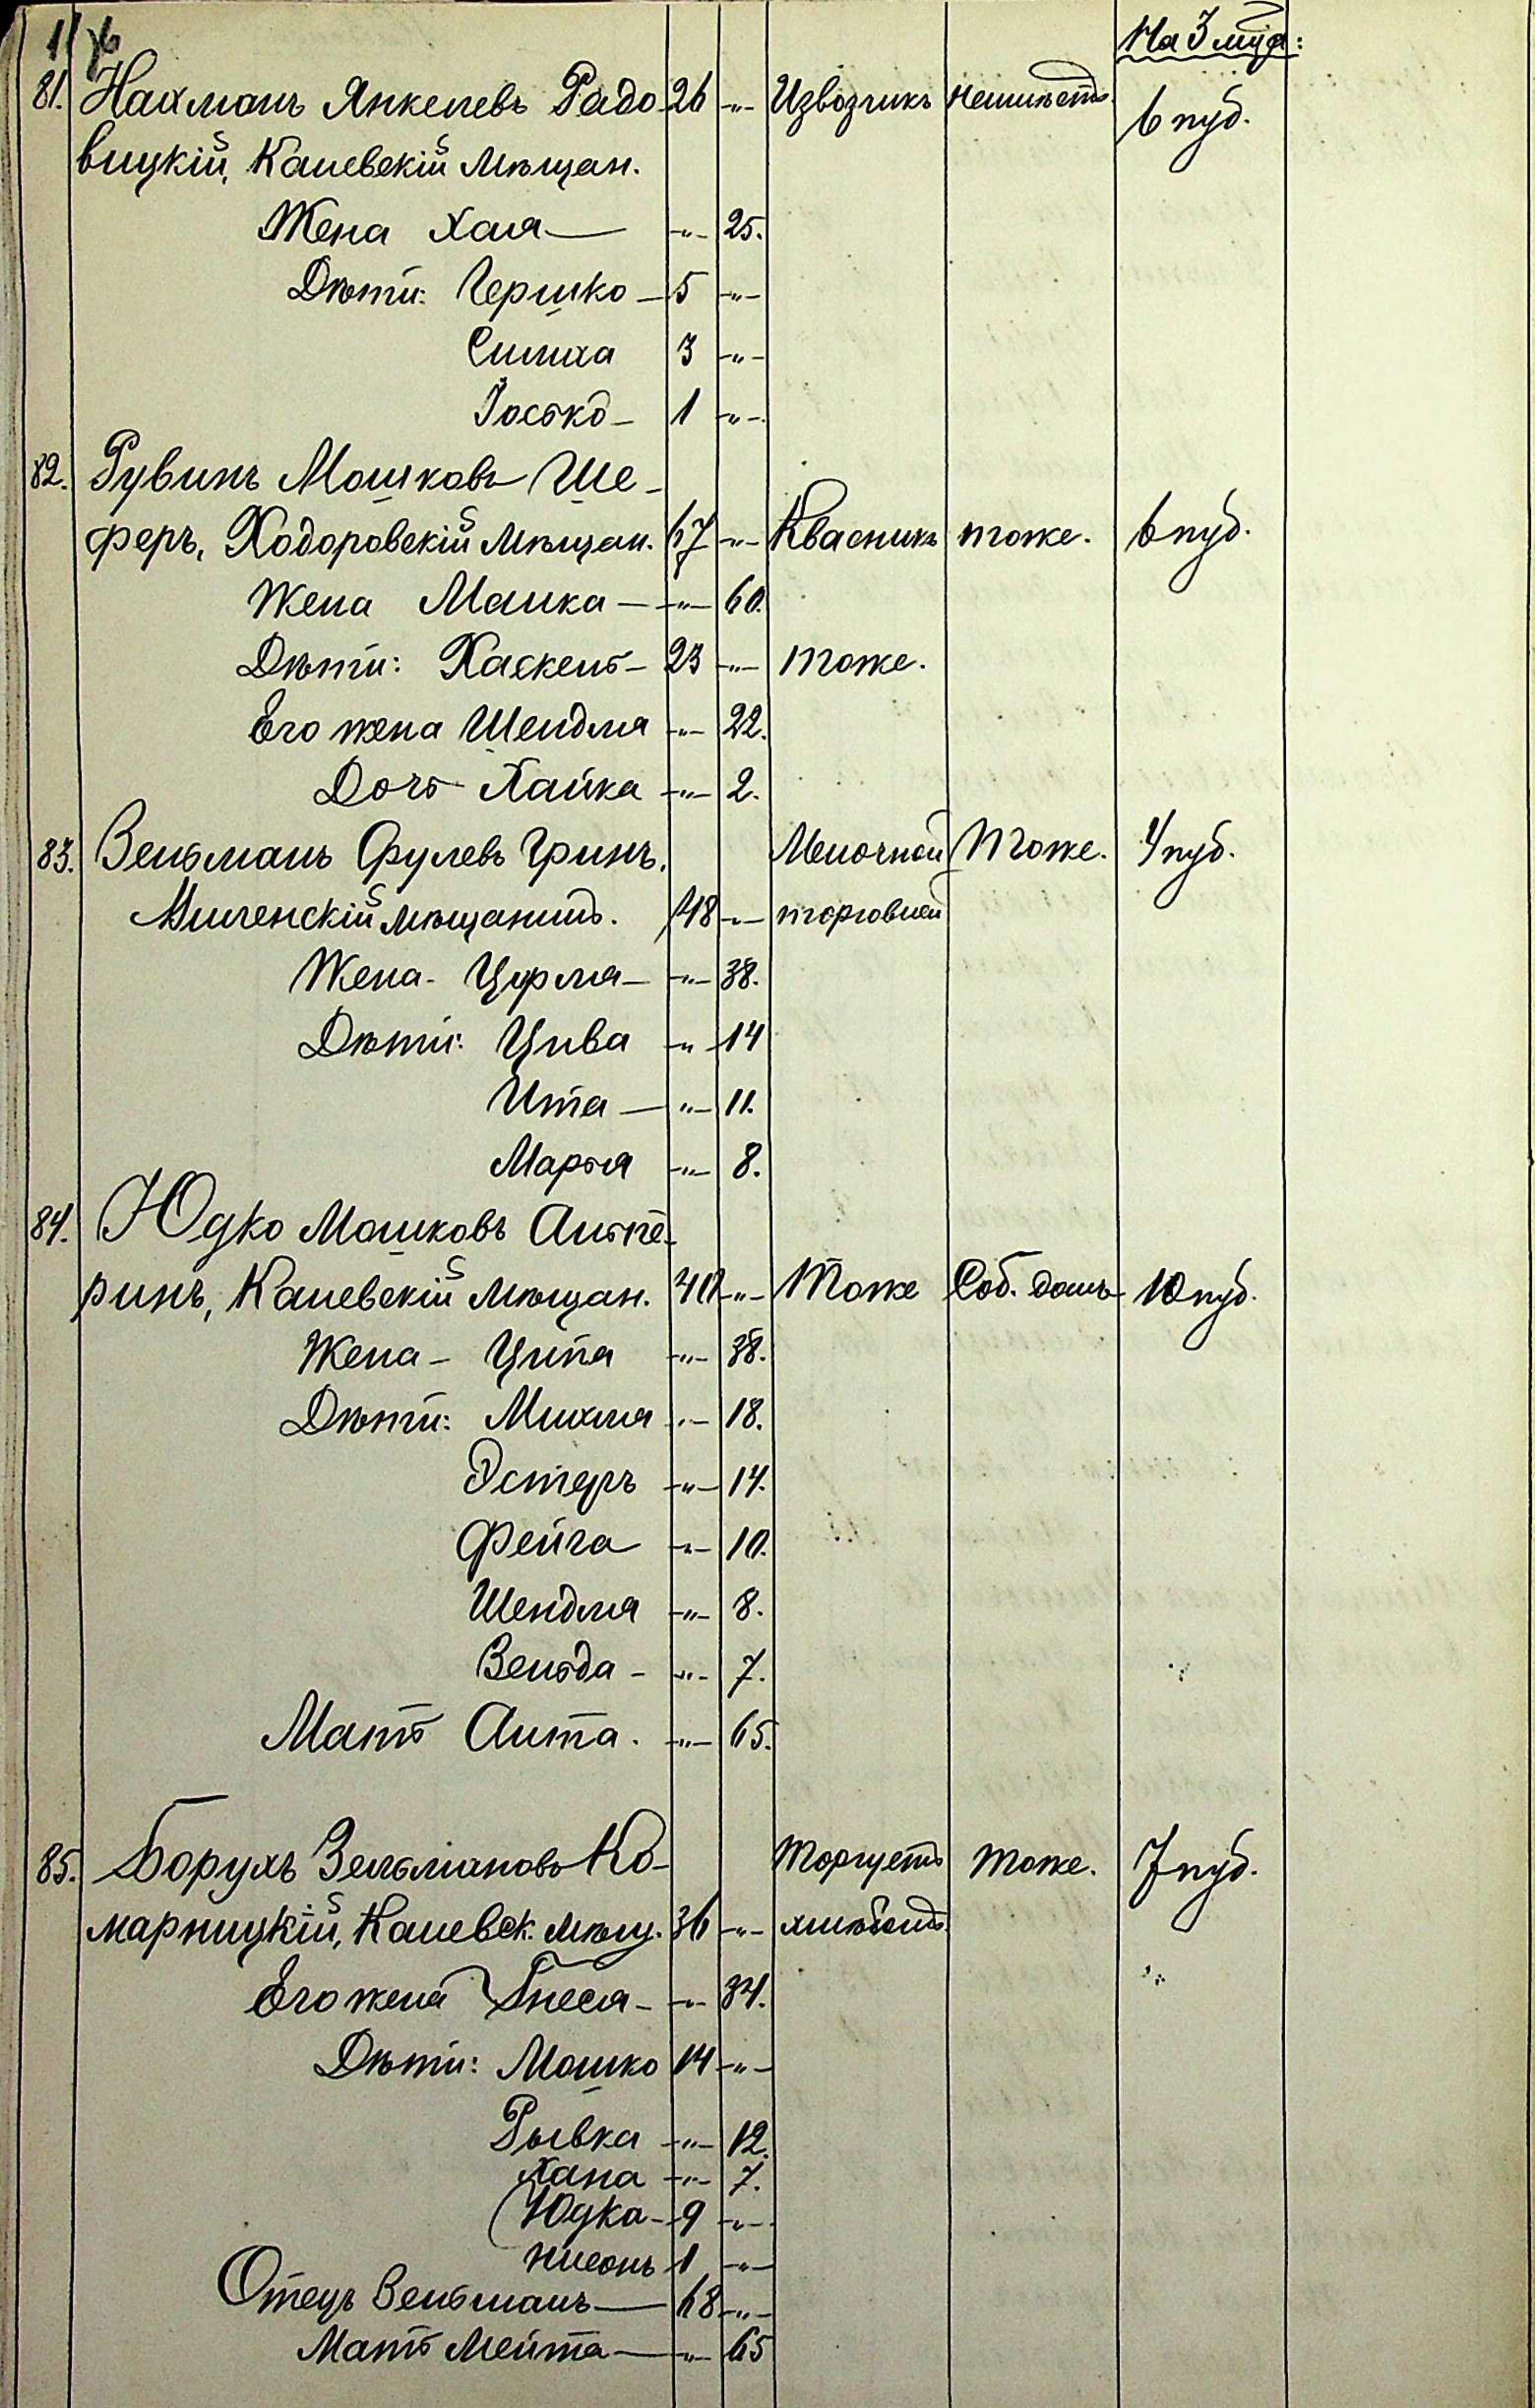 На 3 мца:
81. Нахманъ Янкелевъ Радо- 26 -"- Извозчикъ неимѣетъ 6 пуд.
вицкій, Каневскій мѣщан.
Жена Хая — -"- 25.
Дѣти: Гершко — 5 -"-
Симха 3 -"-
Іосько — 1 -"-
82. Рувинъ Мошковъ Ше-
феръ, Ходоровскій мѣщан. 67 -"- Квасникъ тоже. 6 пуд.
Жена Малка — -"- 60.
Дѣти: Хаскель — 23 -"- тоже.
Его жена Шендля -"- 22.
Дочь Хайка -"- 2.
83. Зельманъ Срулевъ Гринъ, Мелочной Тоже. 4 пуд.
мѣщанинъ. 48 -"- торговлей
Жена - Цурля — -"- 38.
Дѣти: Цива -"- 14
Ита — -"- 11.
Марья -"- 8.
84. Юдко Мошковъ Альпе-
ринъ, Каневскій мѣщан. 40 -"- Тоже Соб. домъ 10 пуд.
Жена — Ципа -"- 38.
Дѣти: Михля -"- 18.
Эстеръ -"- 14.
Фейга -"- 10.
Шендля -"- 8.
Зельда — -"- 7.
Мать Алта. -"- 65.
85. Борухъ Зельмановъ Ко- Торгуетъ тоже. 7 пуд.
марницкій, Каневск. мѣщ. 36 -"- хлѣбомъ
Его жена Гнеся — -"- 34.
Дѣти: Мошко 14 -"-
Рывка -"- 12.
Хана -"- 7.
Юдка — 9 -"-
Нисонъ 1 -"-
Отецъ Зельманъ — 68 -"-
Мать Мейта — -"- 65